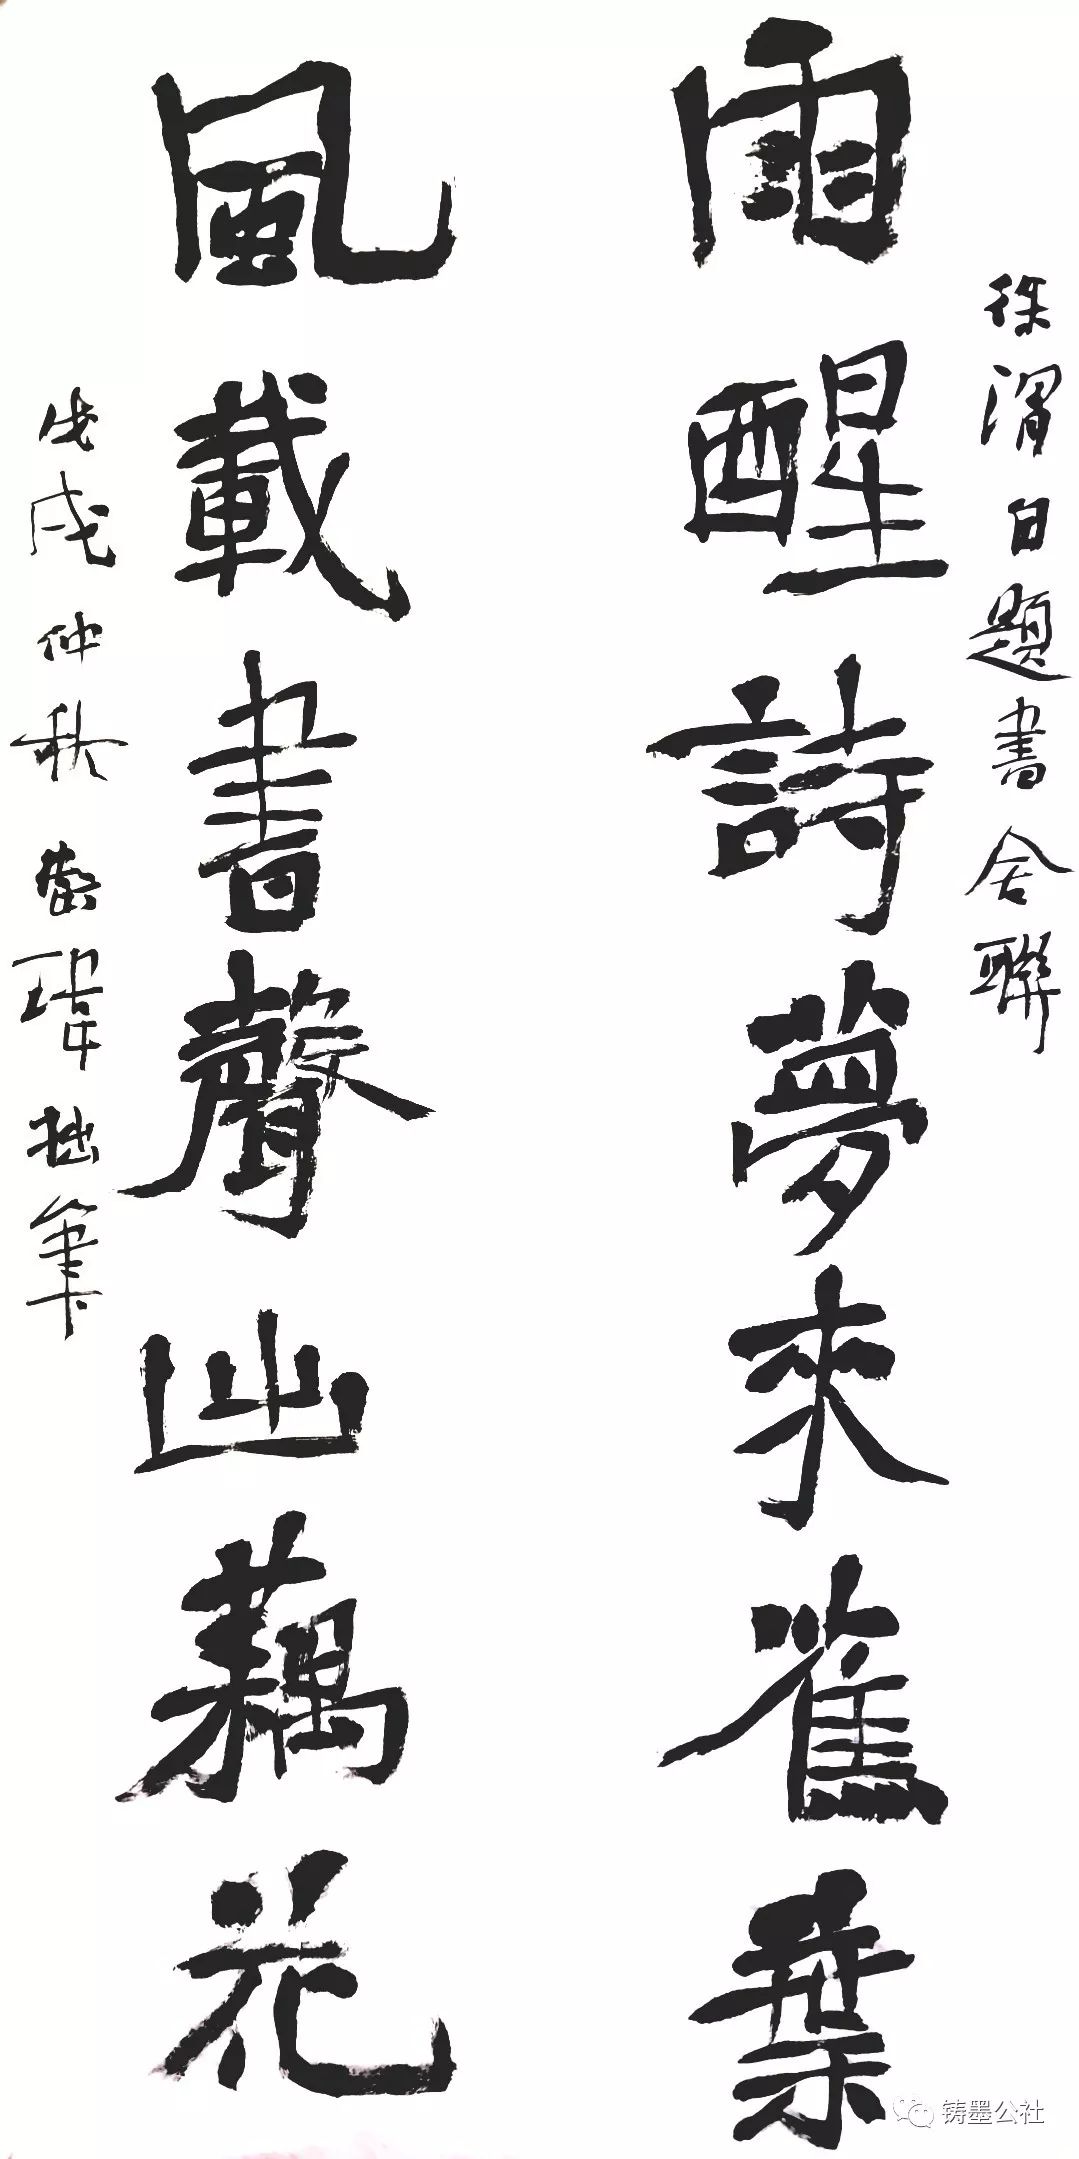 徐渭自題書舍聯
雨醒詩夢來蕉葉
風載書聲出藕花
戊戌仲秋瑋拙筆
铸墨公社